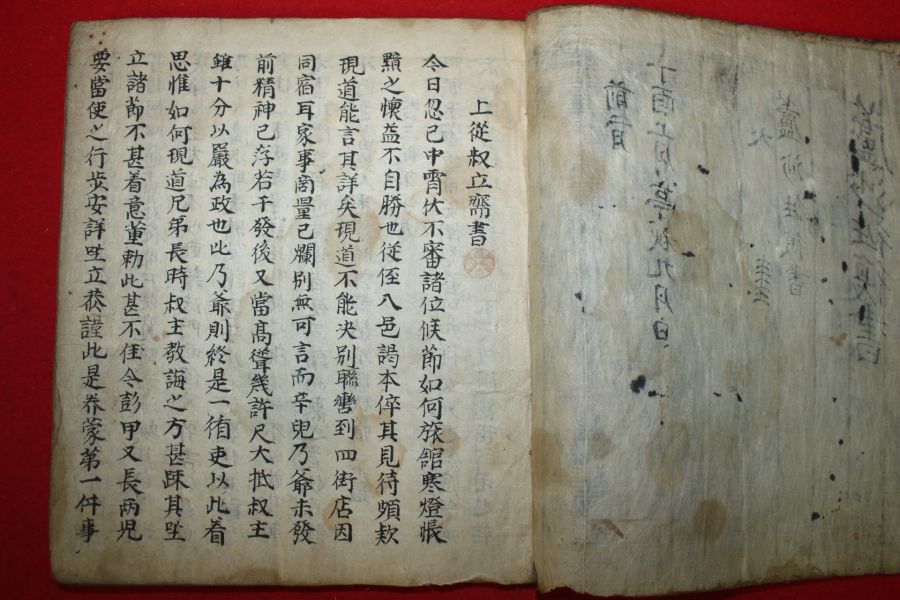 丁酉 月 秋九月日
上從叔立齋書
今日忽已中霄伏不審諸位候節如何旅舘寒燈悵
黯之懷益不自勝也從侄入邑謁本倅其見待頗款
現道能言其詳矣現道不能決別聯轡到四街店因
同宿耳家事啇量已爛別無可言而辛兒乃爺未發
前精神已浮若干發後又當高聳幾許尺大抵叔主
雖十分以嚴為政也此乃爺則終是一循吏以此看
思惟如何現道兄弟長時叔主敎誨之方甚踈其坐
立諸節不甚着意董勅此甚不佳令彭甲又長兩兒
要當使之行步安詳坐立恭謹此是养蒙第一件事